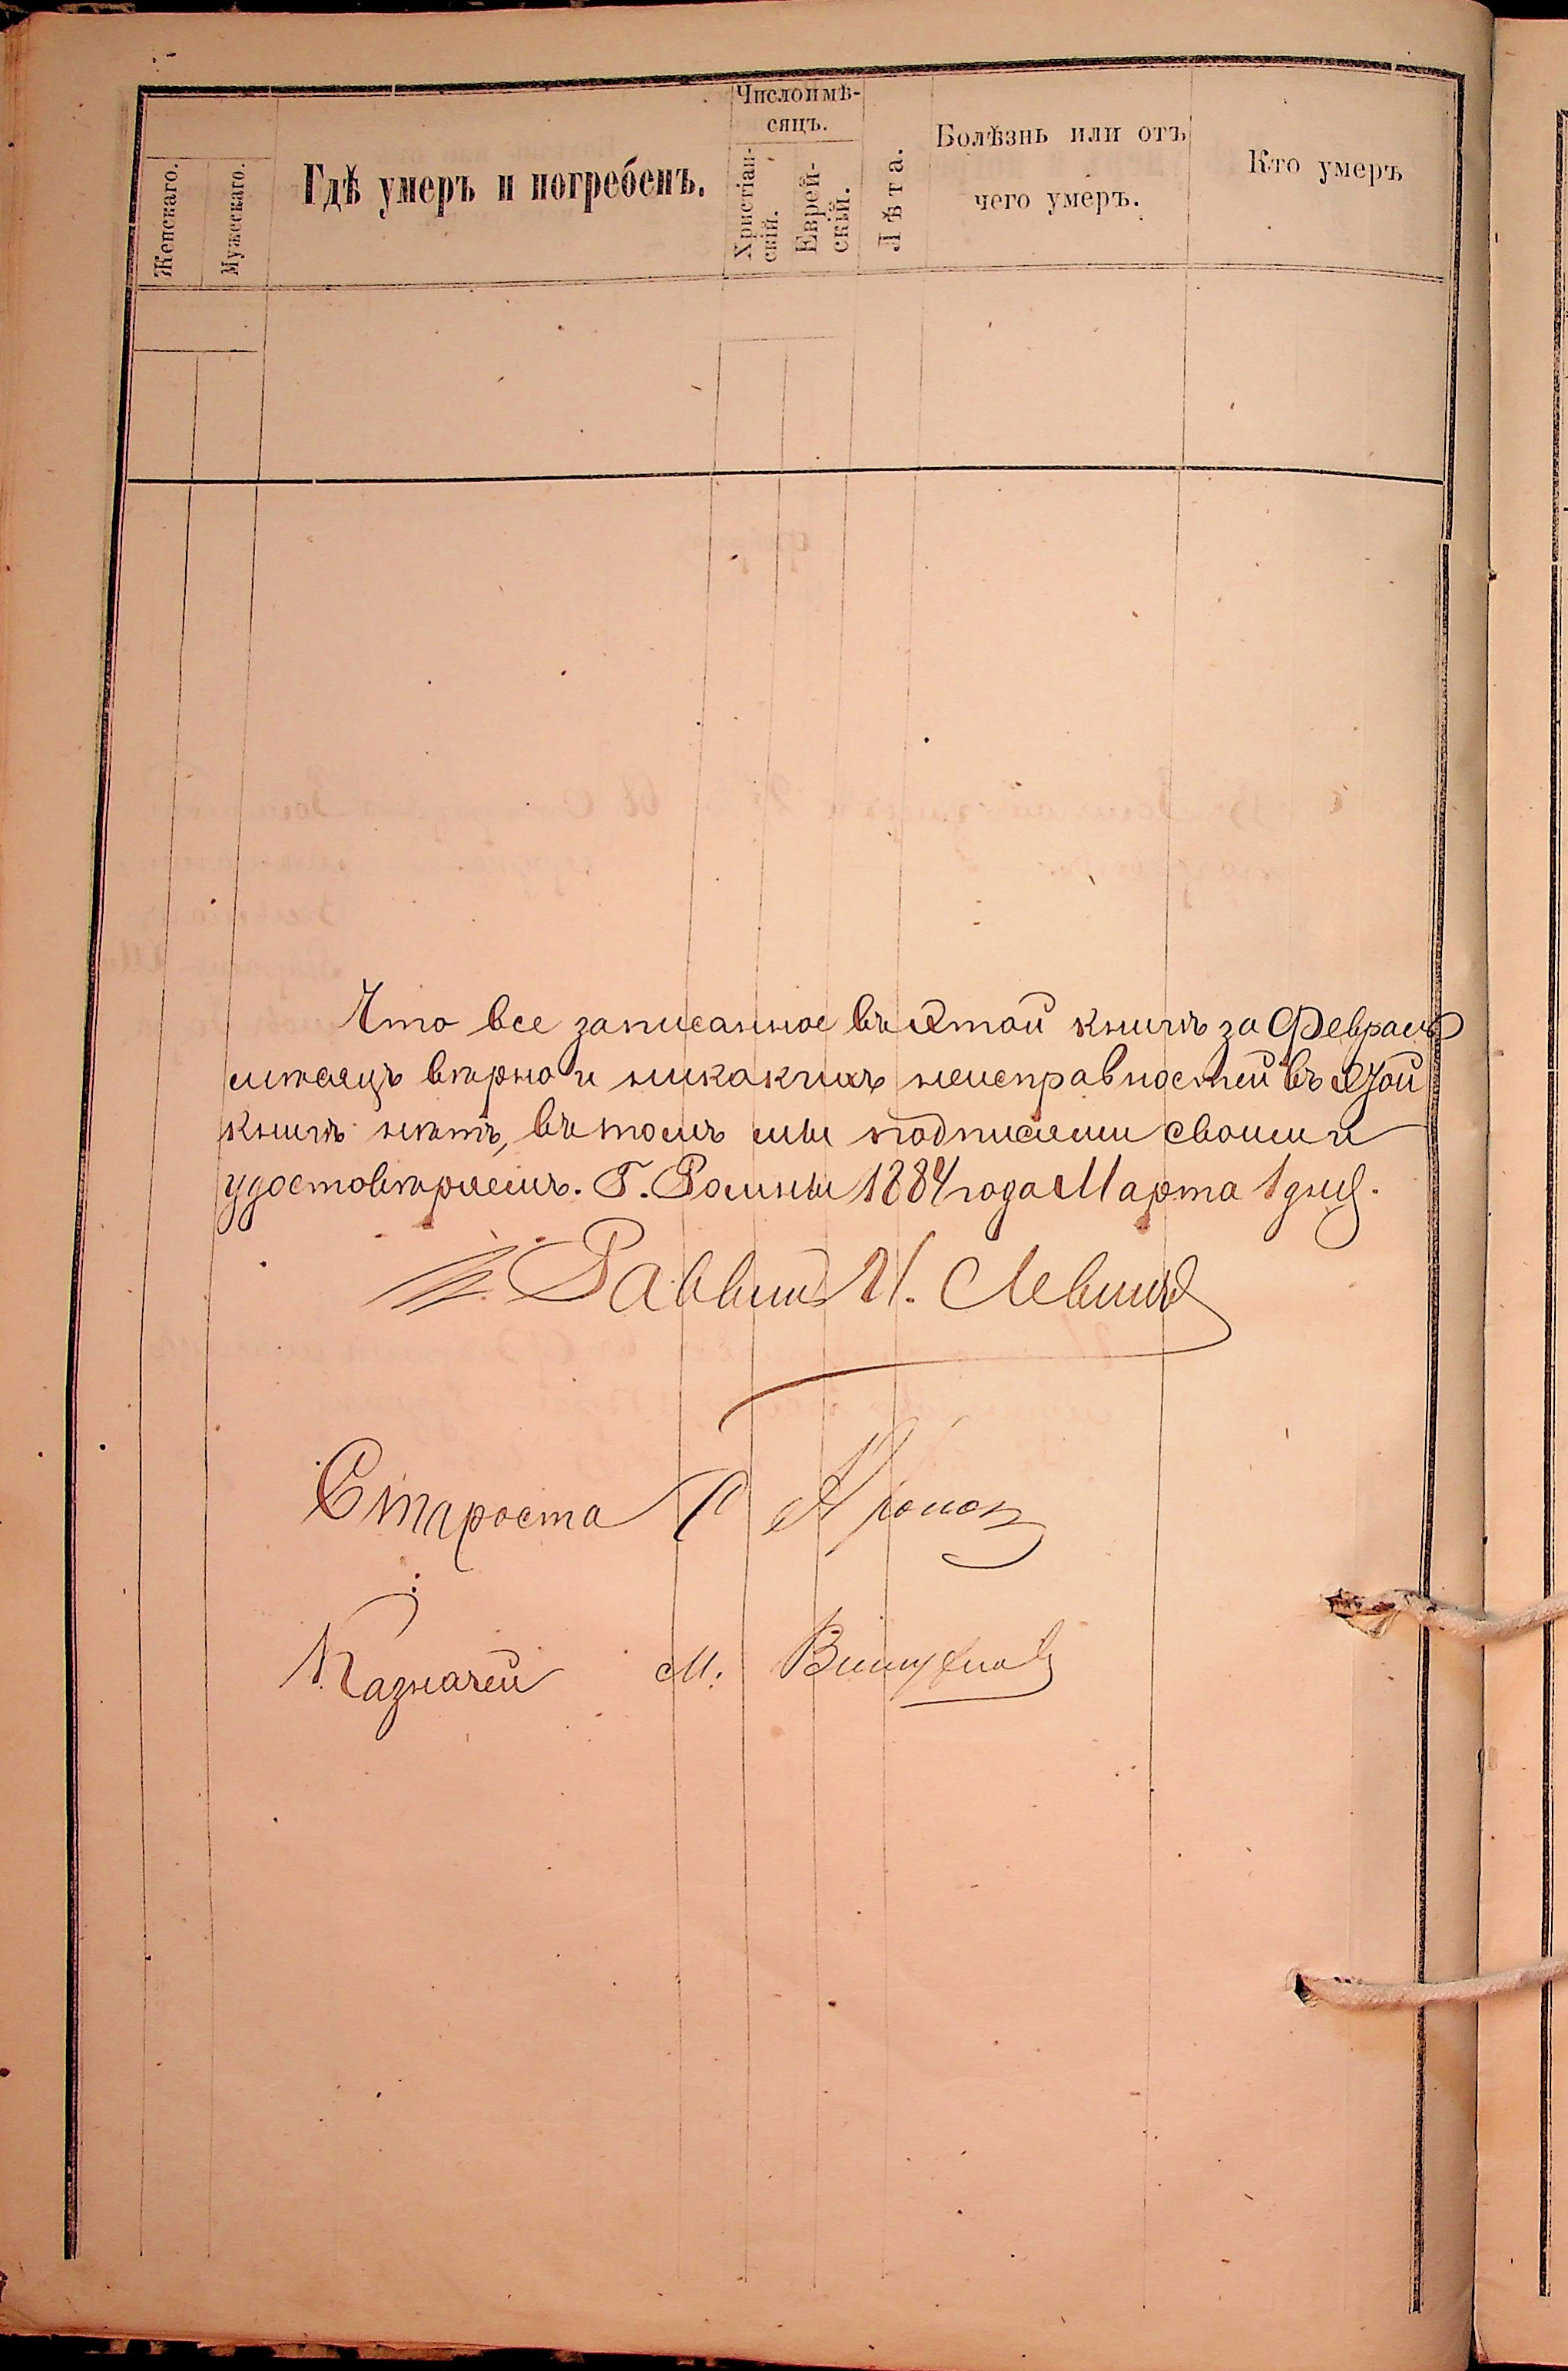 Числоимѣ-
сяцъ.
Женскаго.
Мужескаго.
Гдѣ умеръ и погребенъ.
Христіан-
скій.
Еврей-
скій.
Лѣта.
Болѣзнь или отъ
чего умеръ.
Кто умеръ
Что все записанное въ этой книгѣ за Февраль
мѣсяцъ вѣрно и никакихъ неисправностей въ этой
книгѣ нѣтъ, въ томъ мы подписями своими
удостовѣряемъ. Г. Ромны 1884 года Марта 1 дня.
Раввинъ И. Левинъ
Староста
Казначей М.